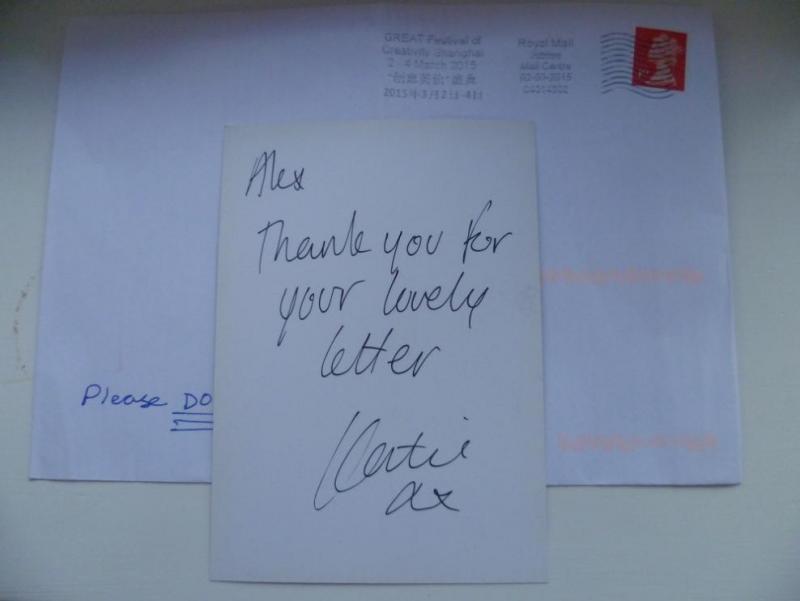 GREAT Festival of
Creativity Shanghai
2 - 4 March 2015
"创意英伦"盛典
2015年3月2日-4日
Royal Mail
Mail Centre
02-03-2015
Alex
Thank you for
your lovely
letter
Katie
xx
Please DO